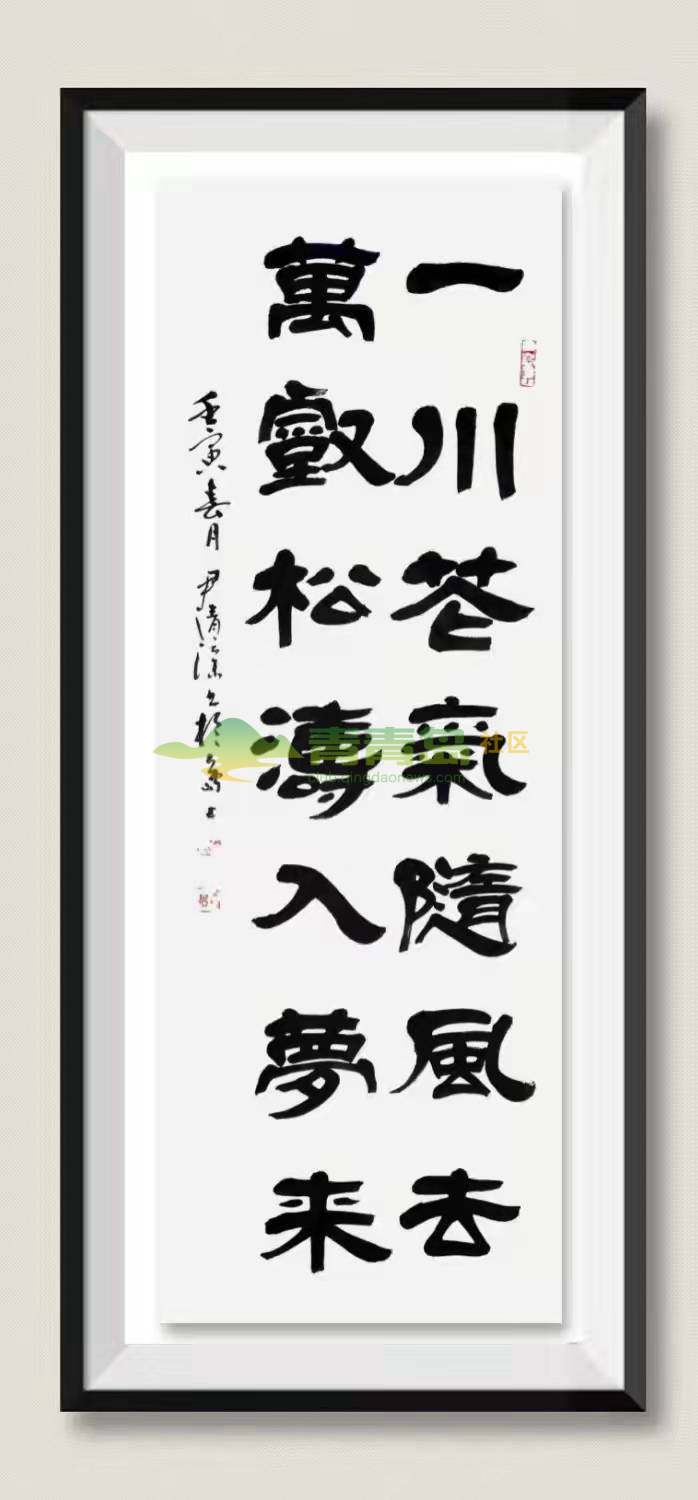 一川花氣隨風去
萬壑松濤入夢来
壬寅春月尹清
青青岛社区
club.qingdaonews.com